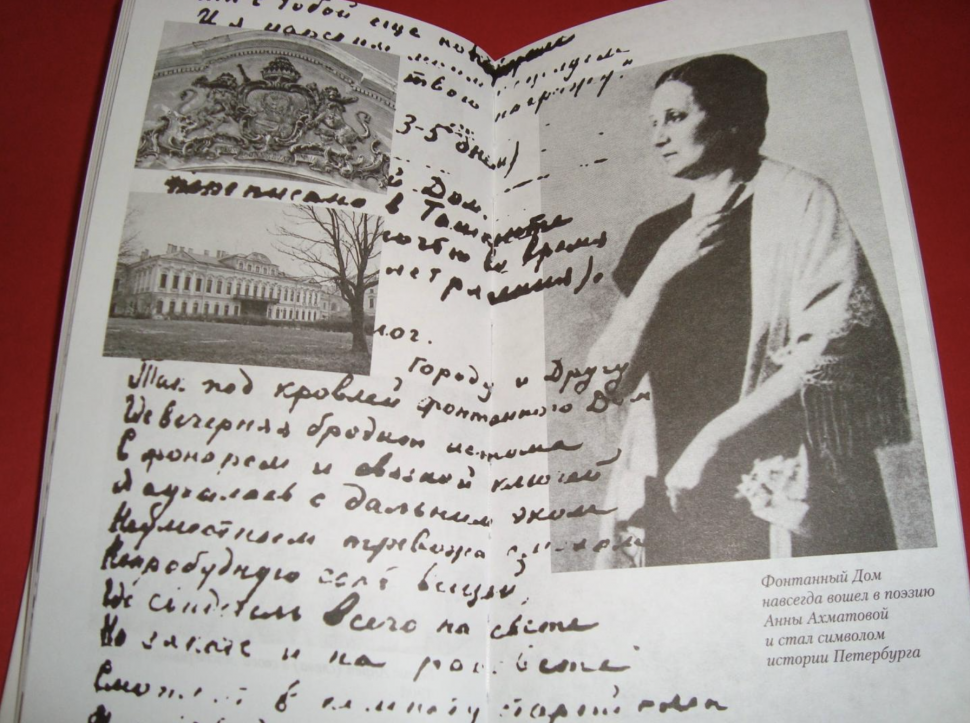 с тобой еще
И я
твою
3-5 днем)
й Дом.
переписано в Ташкенте
ночью во время
летрясения).
лог.
Городу и Другу
Так под кровлей Фонтанного Дома
Где вечерняя бродит истома
С фонарем и связкой ключей
Я аукалась с дальним эхом
Неуместным тревожа смехом
Непробудную сонь вещей,
Где свидетель всего на свете
На закате и на рассвете
Смотрит в комнату старый клен
Фонтанный Дом
навсегда вошел в поэзию
Анны Ахматовой
и стал символом
истории Петербурга